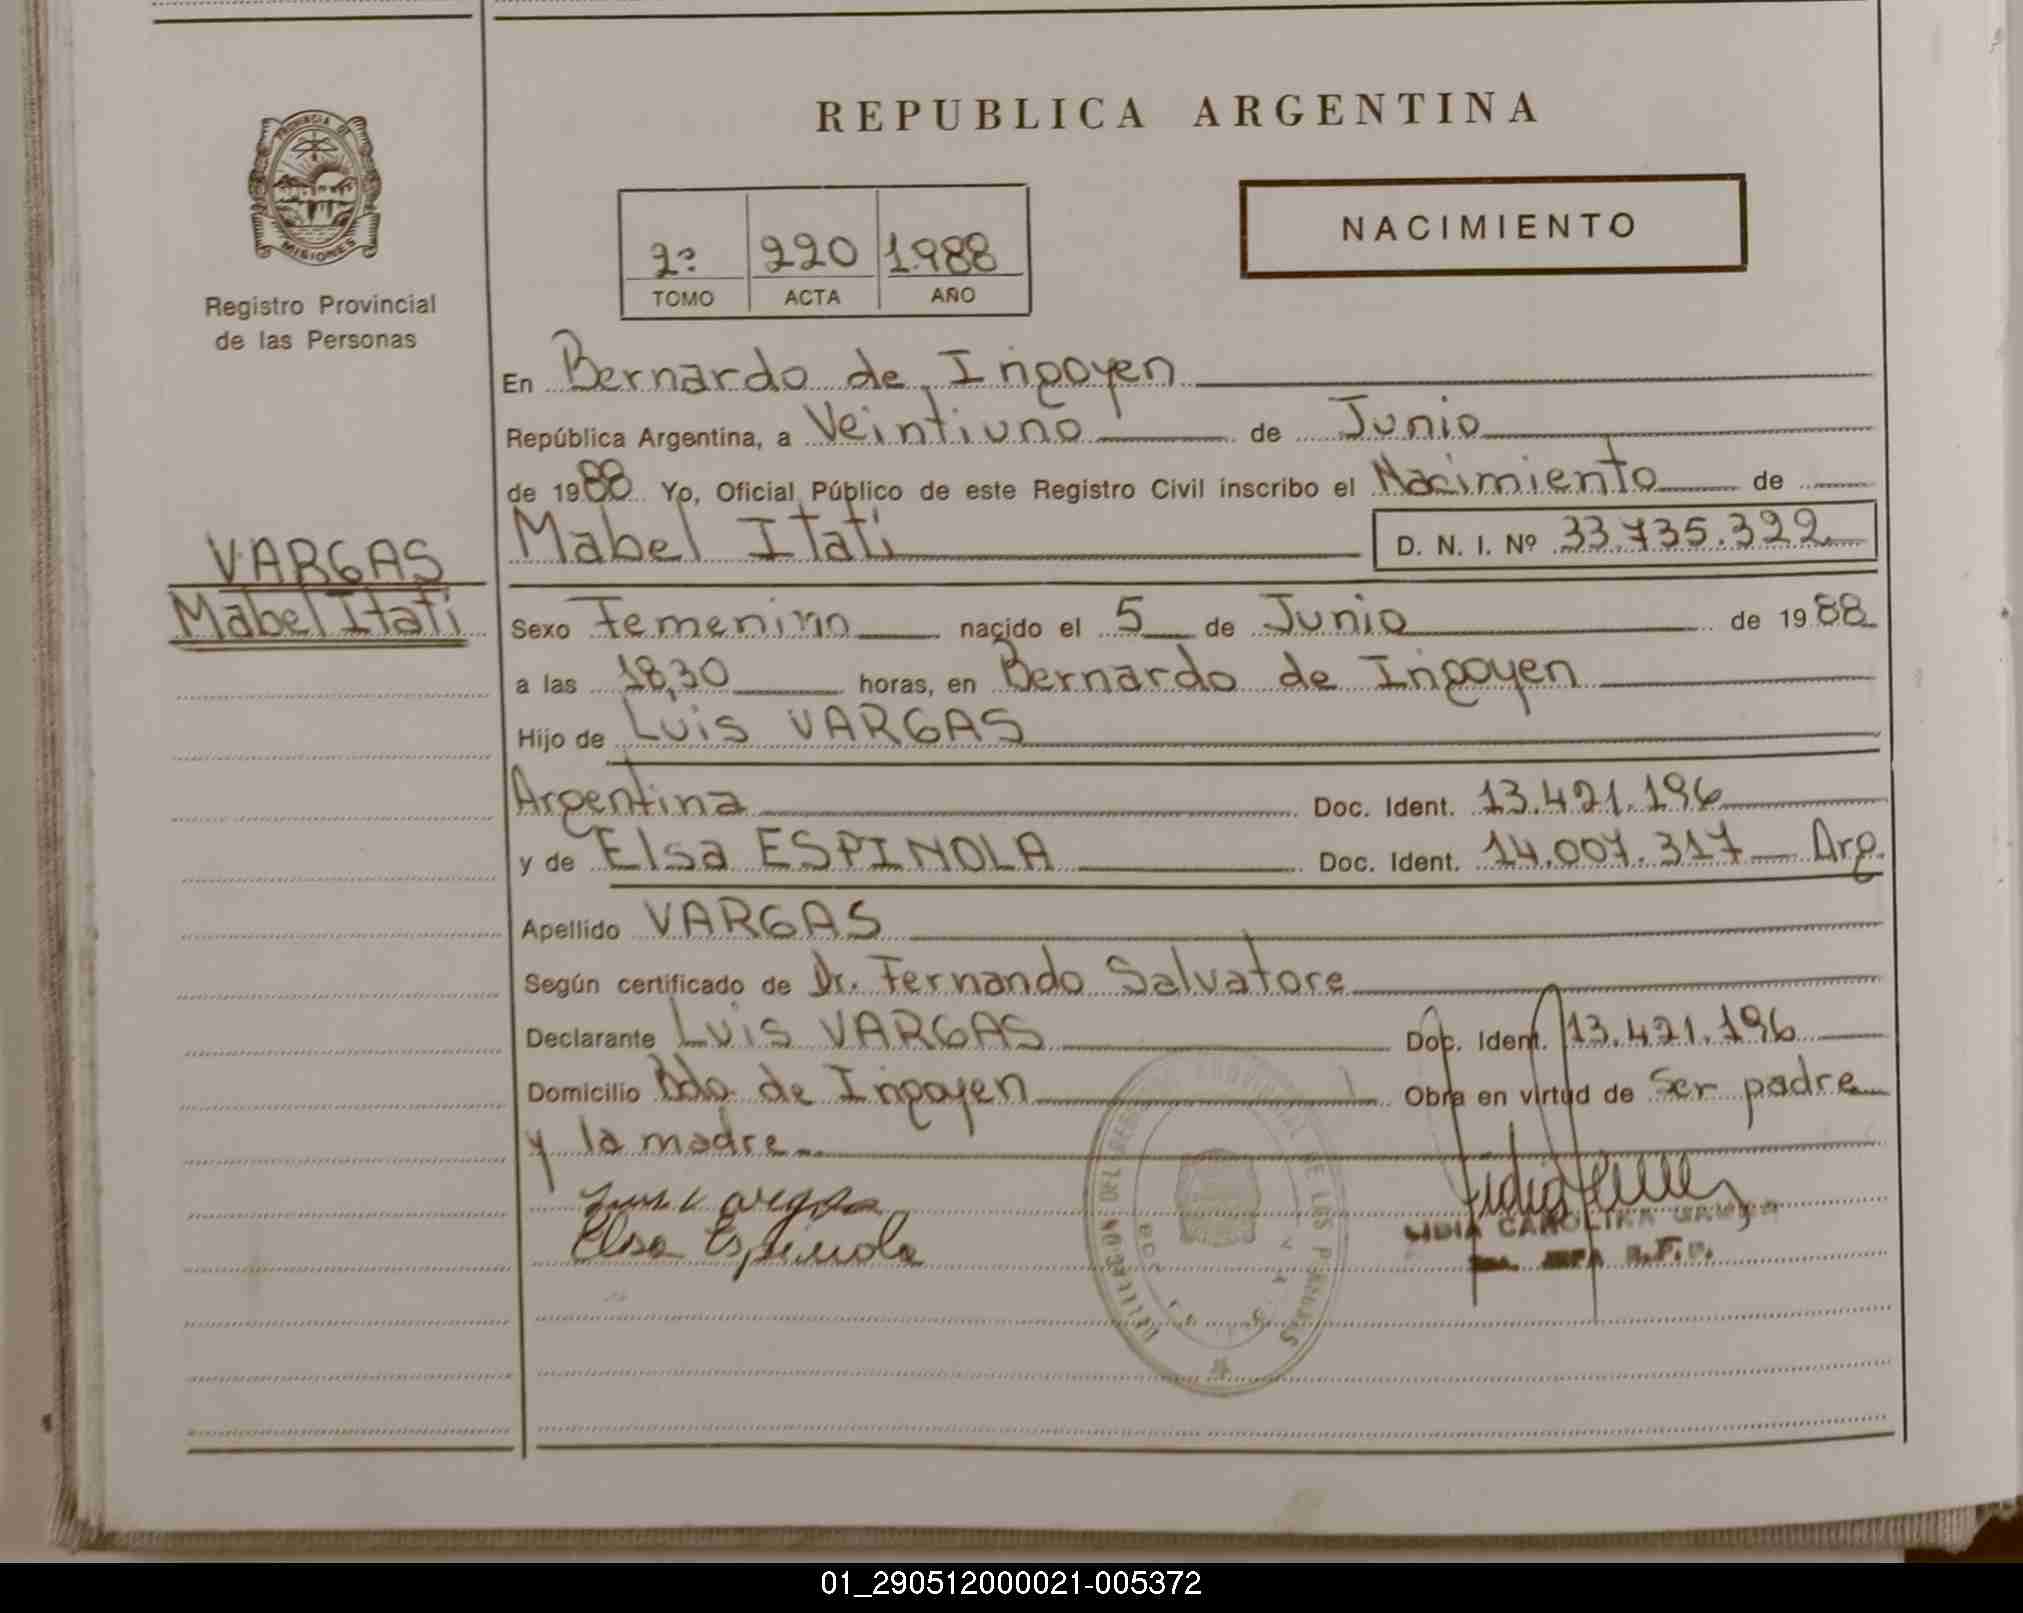 REPUBLICA ARGENTINA
PROVINCIA DE
MISIONES
Registro Provincial
de las Personas
2º 220 1988
TOMO ACTA AÑO
NACIMIENTO
En Bernardo de Irigoyen
República Argentina, a Veintiuno de Junio
de 1988 Yo, Oficial Público de este Registro Civil inscribo el Nacimiento de
Mabel Itatí D. N. I. Nº 33.735.322
VARGAS
Mabel Itatí
Sexo Femenino nacido el 5 de Junio de 1988
a las 18,30 horas, en Bernardo de Irigoyen
Hijo de Luis VARGAS
Argentina Doc. Ident. 13.421.196
y de Elsa ESPINOLA Doc. Ident. 14.007.317 Arg.
Apellido VARGAS
Según certificado de Dr. Fernando Salvatore
Declarante Luis VARGAS Doc. Ident. 13.421.196
Domicilio Bdo. de Irigoyen Obra en virtud de Ser padre
y la madre
Elsa Espinola
LIDIA CAROLINA
DEL REGISTRO PROVINCIAL DE LAS PERSONAS
01_290512000021-005372